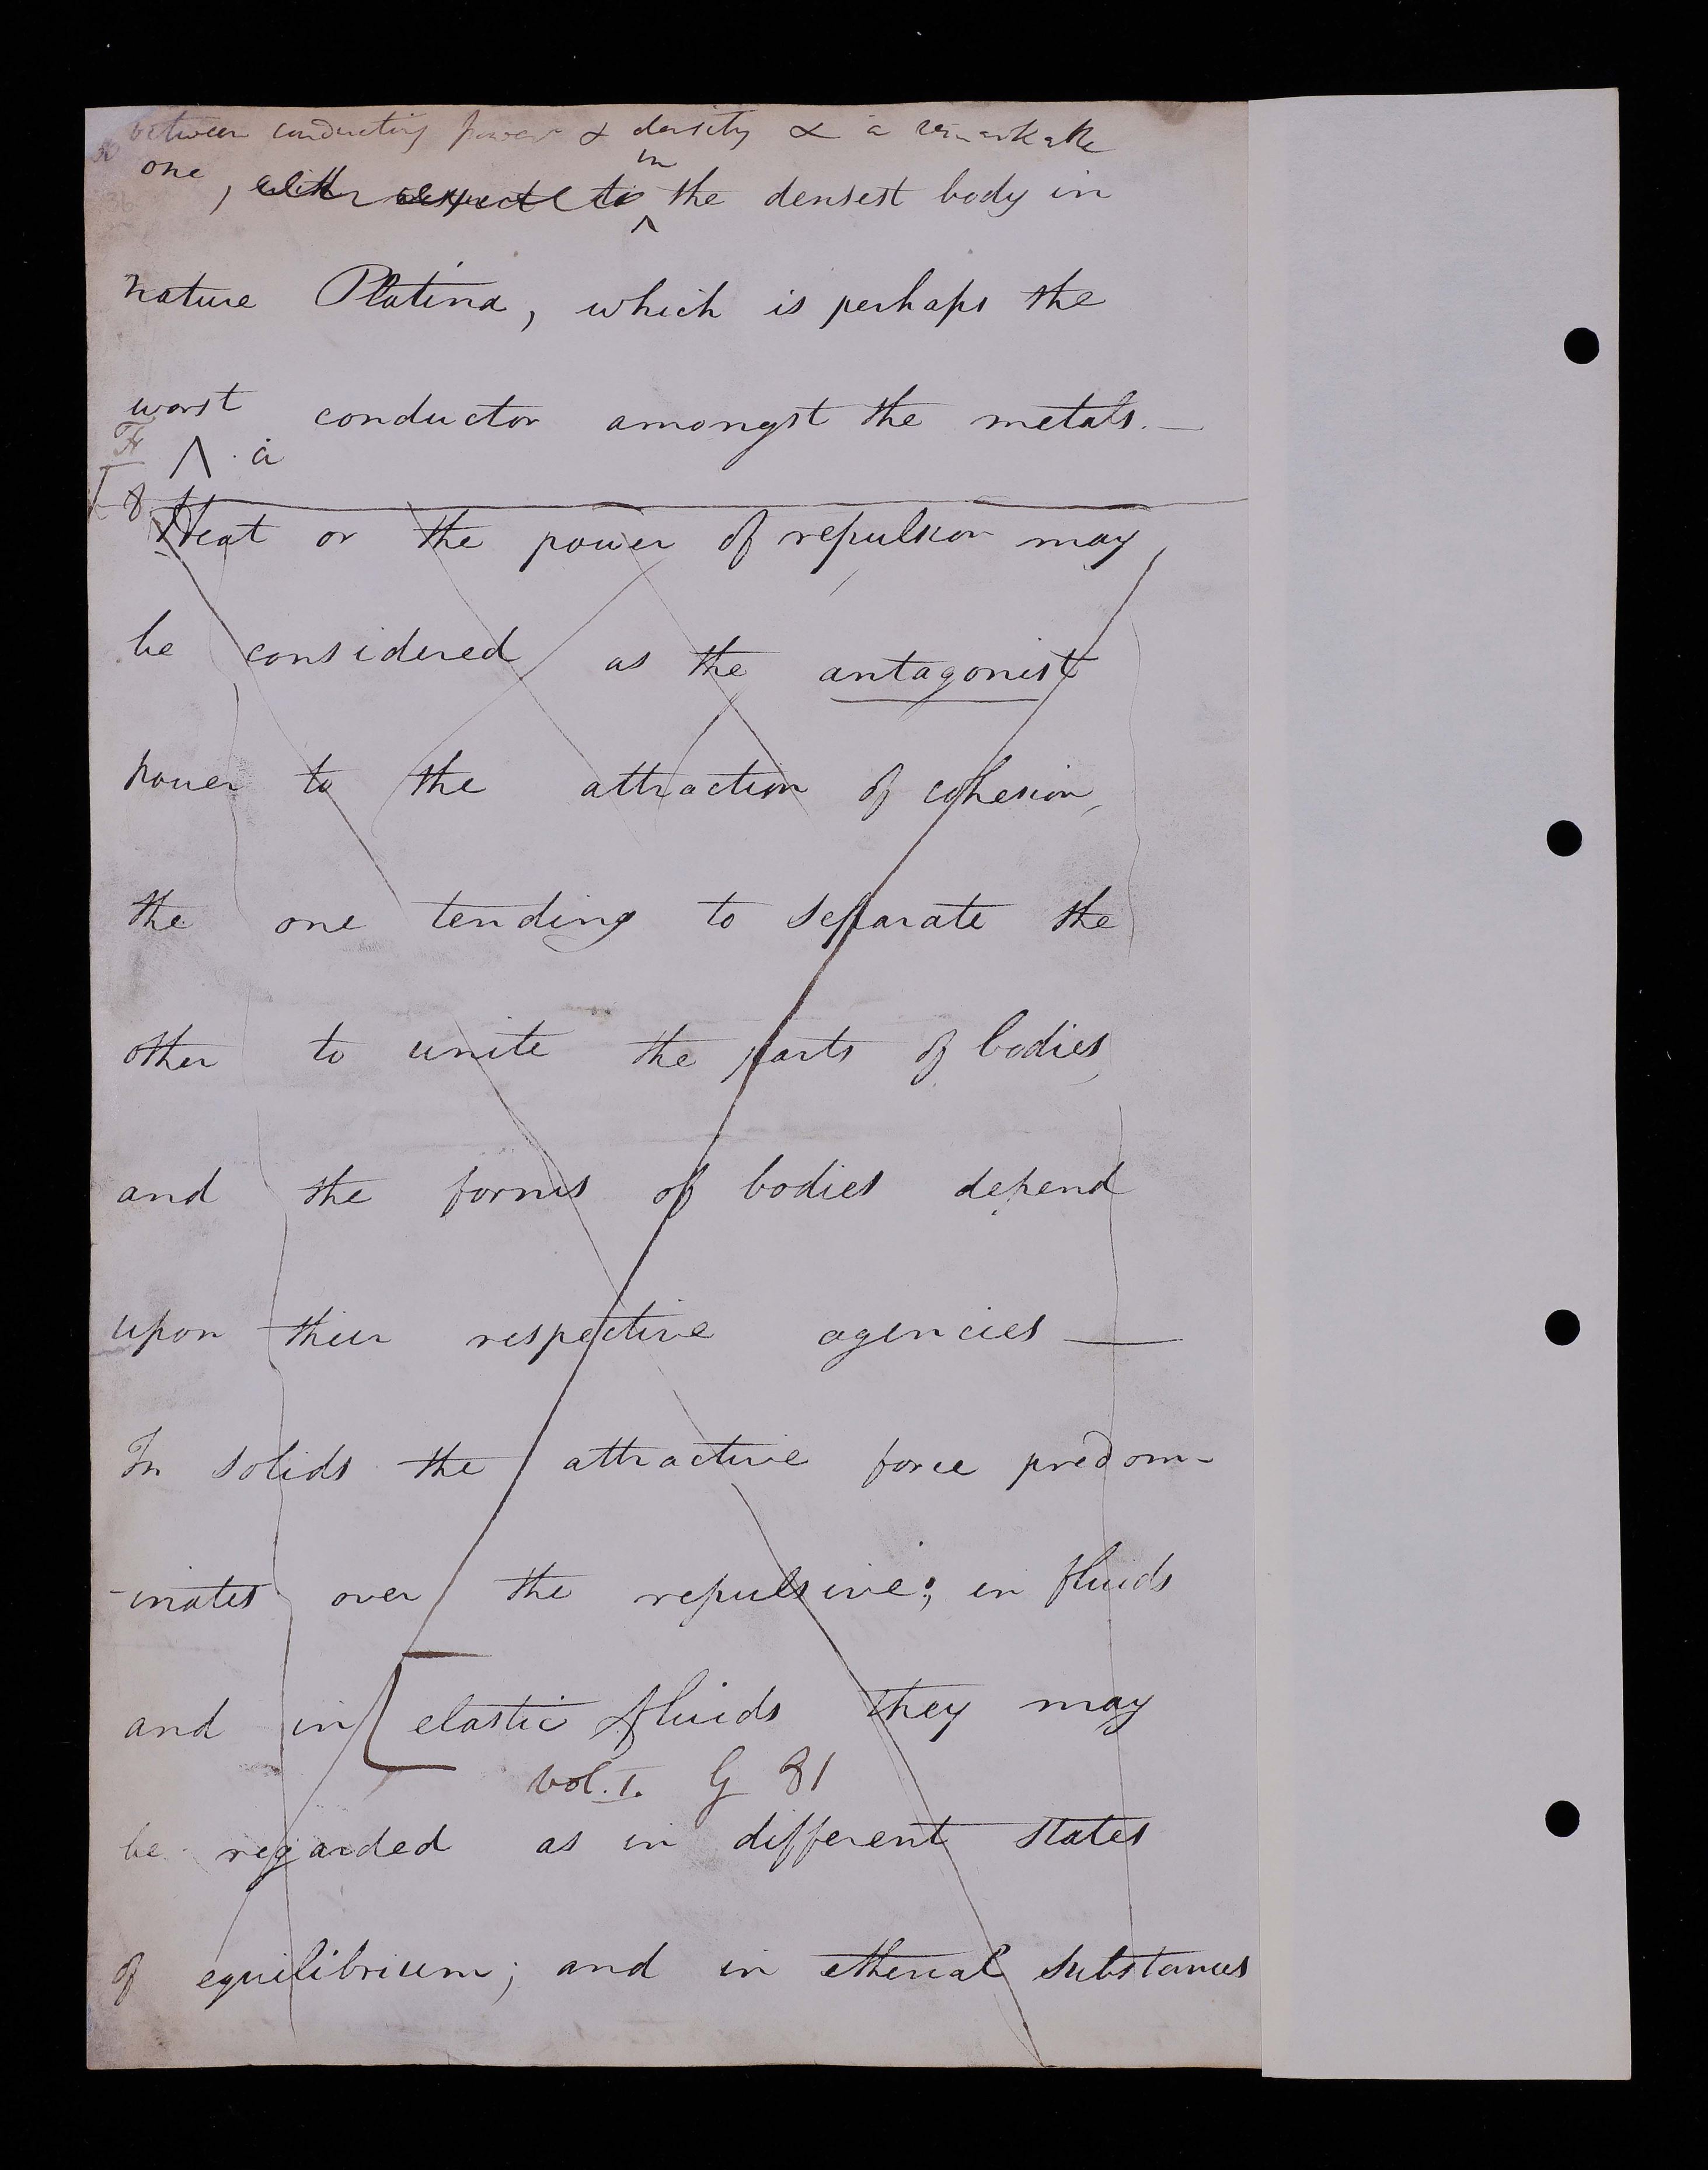 between conducting power & density & a remarkable
one, with respect to in the densest body in
nature Platina, which is perhaps the
worst conductor amongst the metals.—
a
Heat or the power of repulsion may
be considered as the antagonist
power to the attraction of cohesion,
the one tending to separate the
other to unite the parts of bodies,
and the forms of bodies depend
upon their respective agencies —
In solids the attractive force predom-
-inates over the repulsive; in fluids
and in [elastic fluids they may
vol. 1. G 81
be regarded as in different states
of equilibrium; and in etherial substances